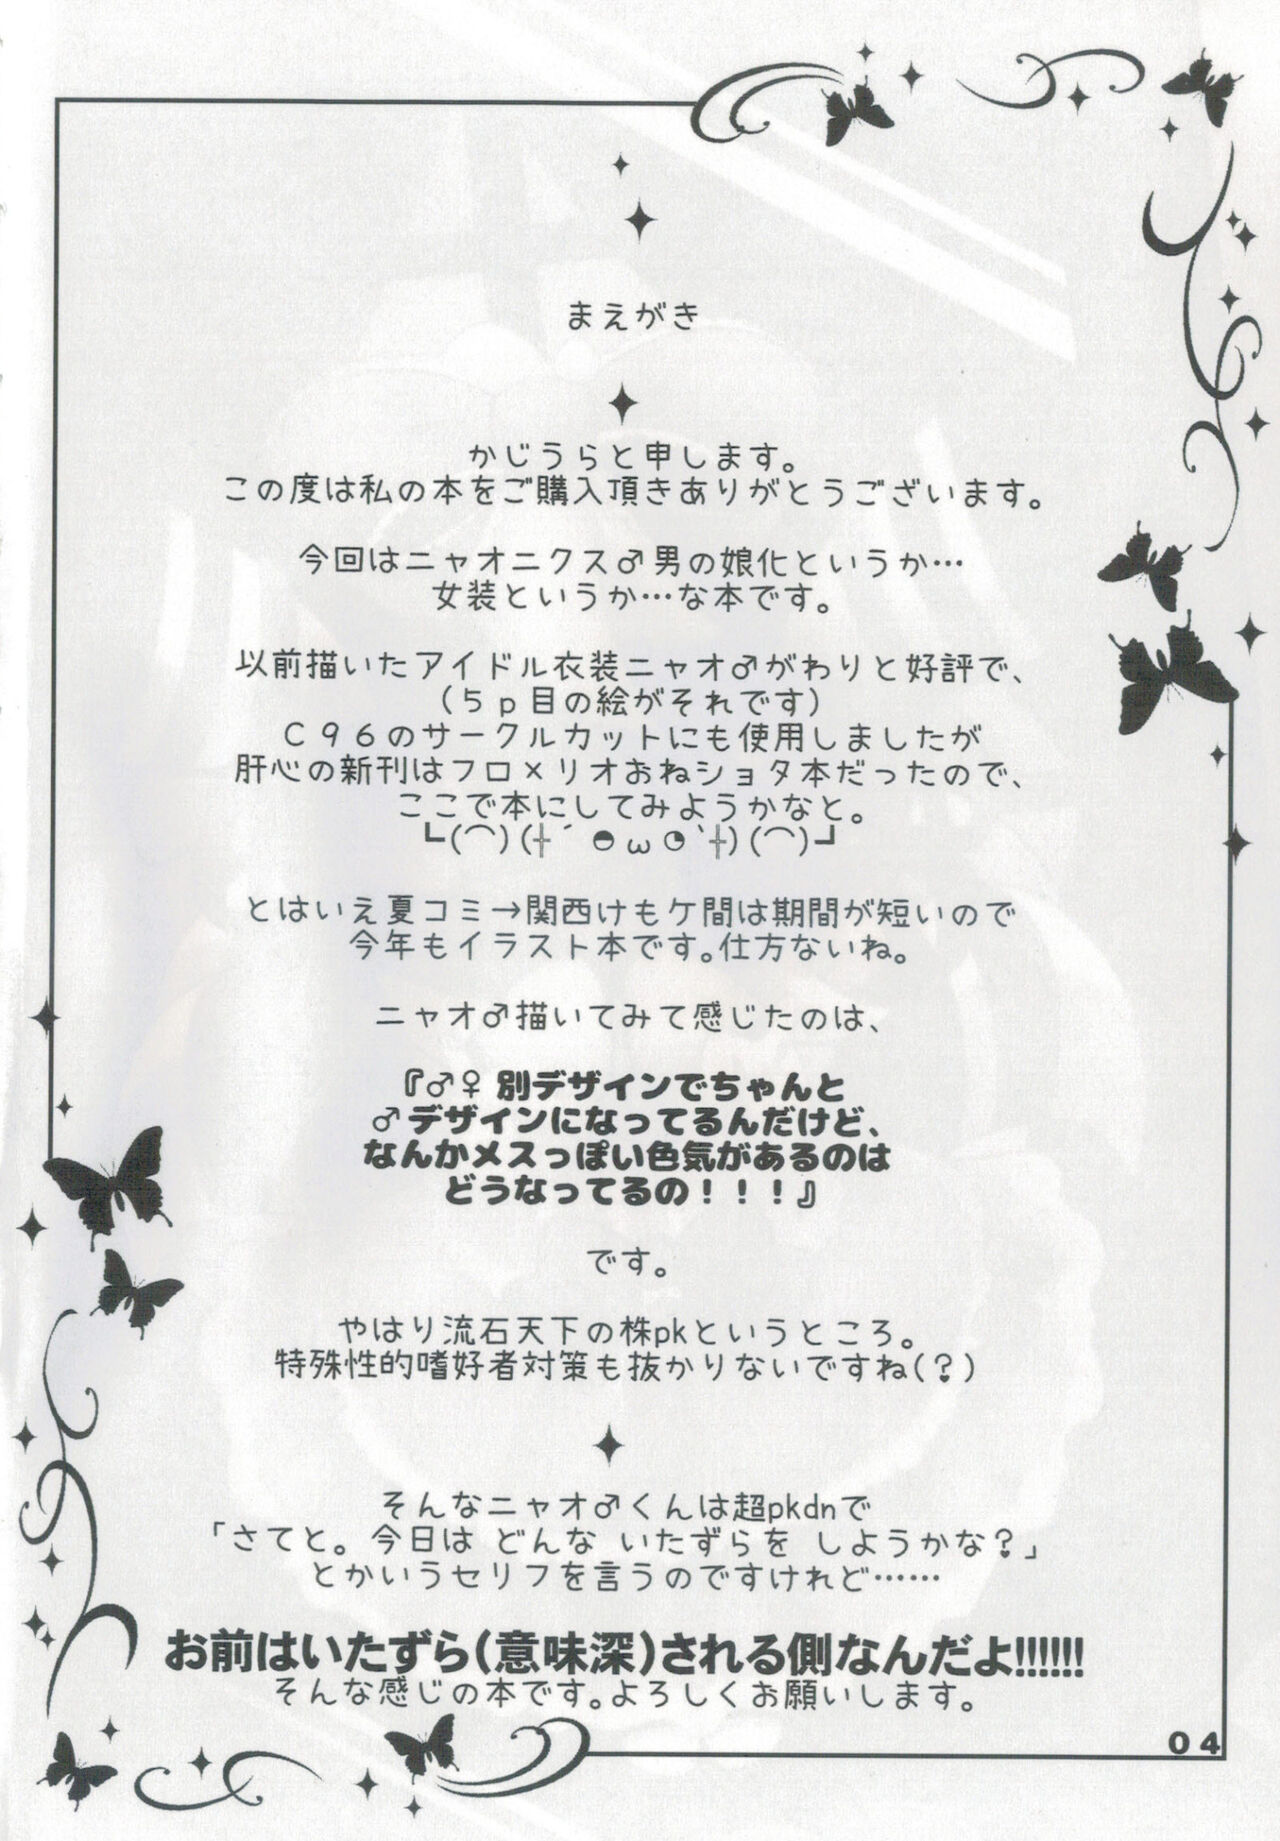 まえがき
かじうらと申します。
この度は私の本をご購入頂きありがとうございます。
今回はニャオニクス♂男の娘化というか…
女装というか…な本です。
以前描いたアイドル衣装ニャオ♂がわりと好評で、
（５ｐ目の絵がそれです）
Ｃ９６のサークルカットにも使用しましたが
肝心の新刊はフロ×リオおねショタ本だったので、
ここで本にしてみようかなと。
┗(⌒)(╬´◓ω◔`╬)(⌒)┛
とはいえ夏コミ→関西けもケ間は期間が短いので
今年もイラスト本です。仕方ないね。
ニャオ♂描いてみて感じたのは、
『♂♀ 別デザインでちゃんと
♂デザインになってるんだけど、
なんかメスっぽい色気があるのは
どうなってるの！！！』
です。
やはり流石天下の株pkというところ。
特殊性的嗜好者対策も抜かりないですね(？)
そんなニャオ♂くんは超pkdnで
「さてと。今日は どんな いたずらを しようかな？」
とかいうセリフを言うのですけれど……
お前はいたずら(意味深)される側なんだよ!!!!!!
そんな感じの本です。よろしくお願いします。
04